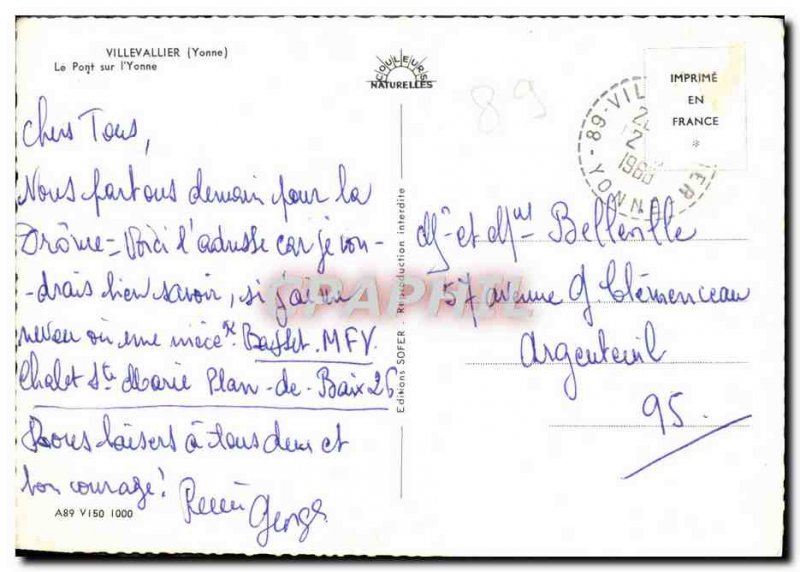 VILLEVALLIER (Yonne)
Le Pont sur l'Yonne
COULEURS
NATURELLES
IMPRIMÉ
EN
FRANCE
*
89-VIL
1980
YONNE
89
Chers Tous,
Nous partons demain pour la
Drôme = Voici l'adresse car je vou-
-drais bien savoir, si j'ai un
neveu ou une nièce. Basset. MFV.
Chalet Ste Marie Plan-de-Baix 26
Bons baisers à tous deux et
bon courage!
Georges
A89 V150 1000
Editions SOFER - Reproduction interdite
Mr et Mme Belleville
57 avenue G. Clémenceau
Argenteuil
95.
CPAPHIL